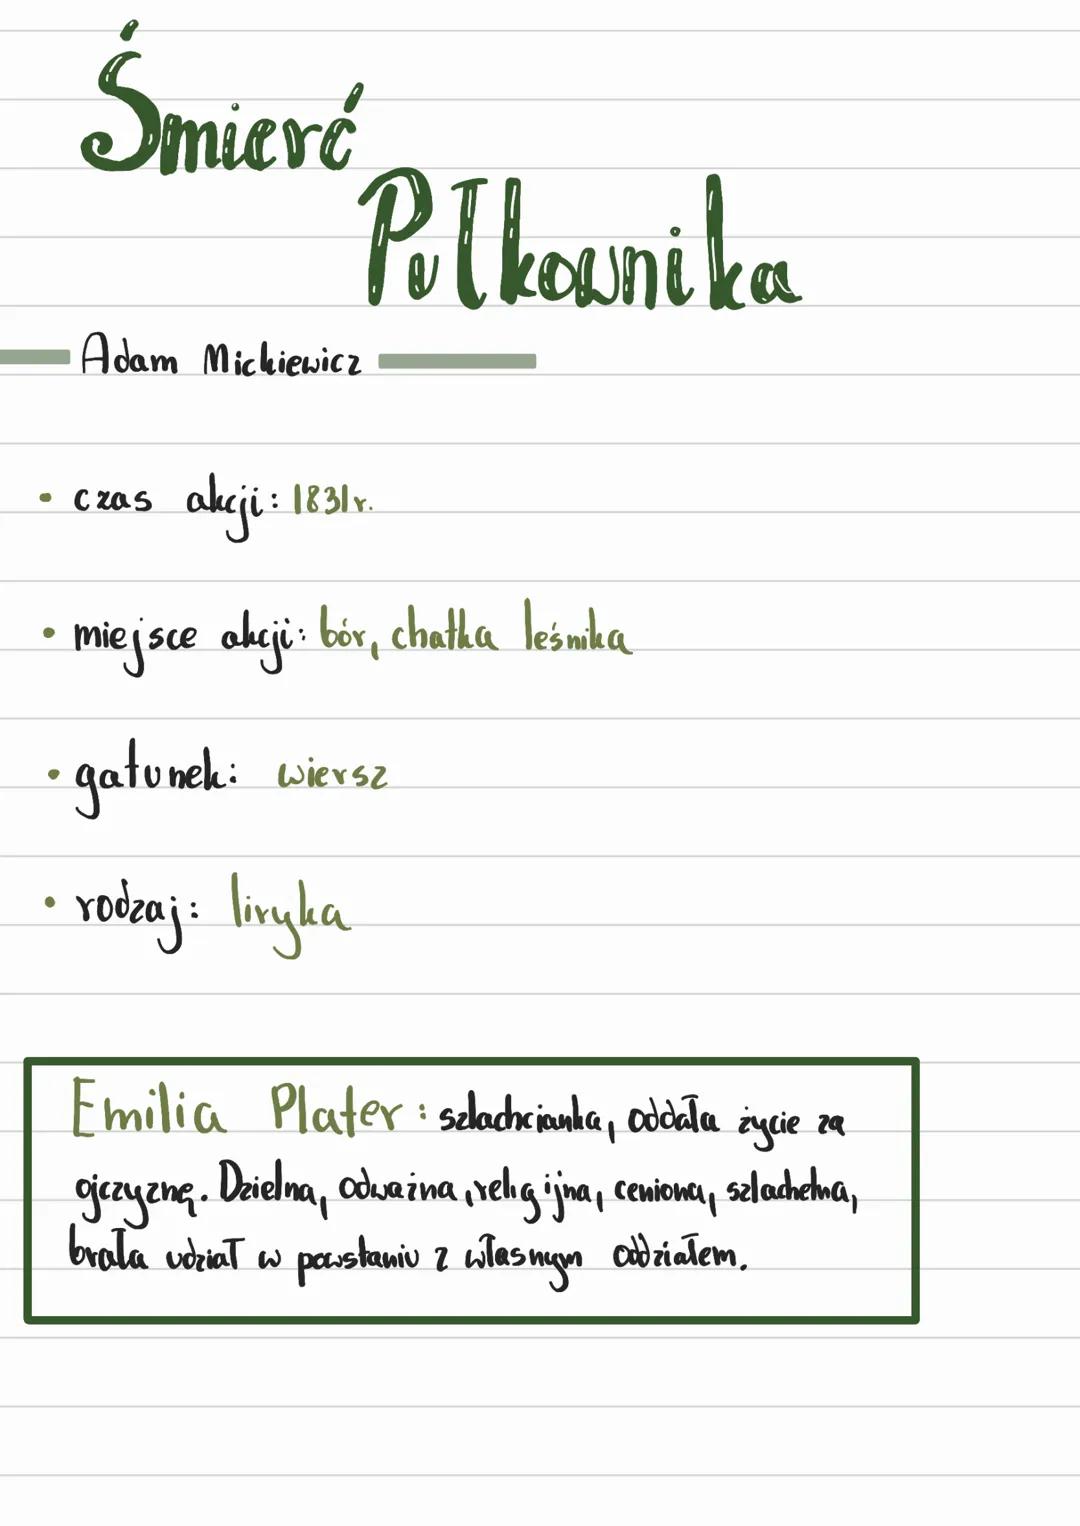 Śmierć
Pułkownika
Adam Mickiewicz
• czas akcji: 1831r.
• miejsce akcji: bór, chatka leśnika
• gatunek: wiersz
• rodzaj: liryka
Emilia Plater: szlachcianka, oddała życie za
ojczyznę. Dzielna, odważna, religijna, ceniona, szlachetna,
brała udział w powstaniu z własnym oddziałem.